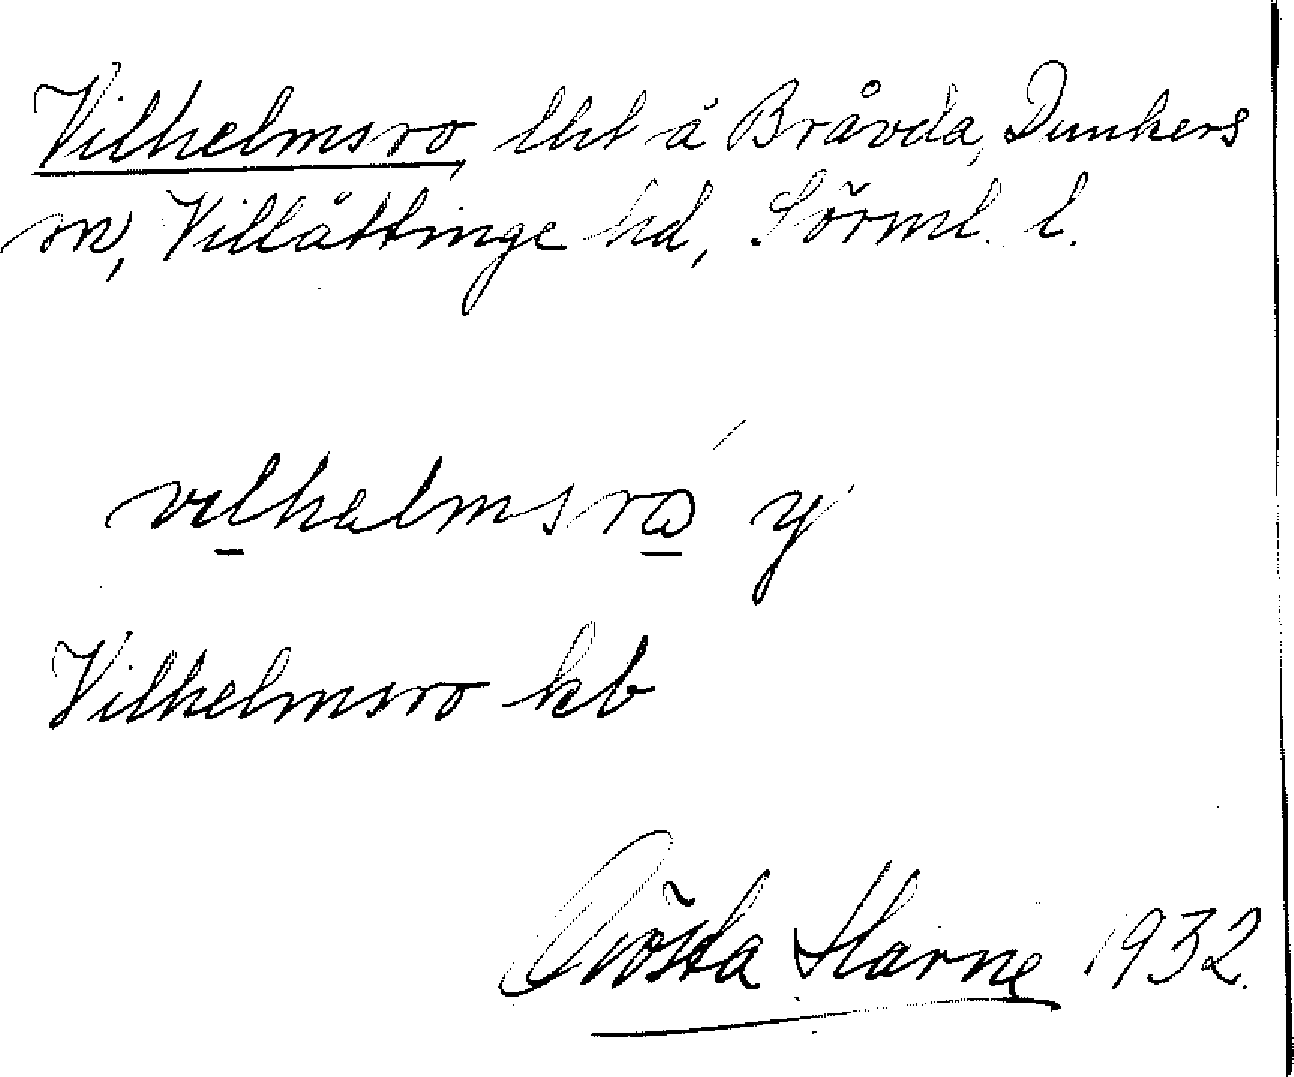 Vilhelmsro, lht å Bråvda, Dunkers
sn, Villåttinge hd, Sörml. l.
vilhalmsrω´ y
Vilhelmsro kb
Gösta Harne 1932.